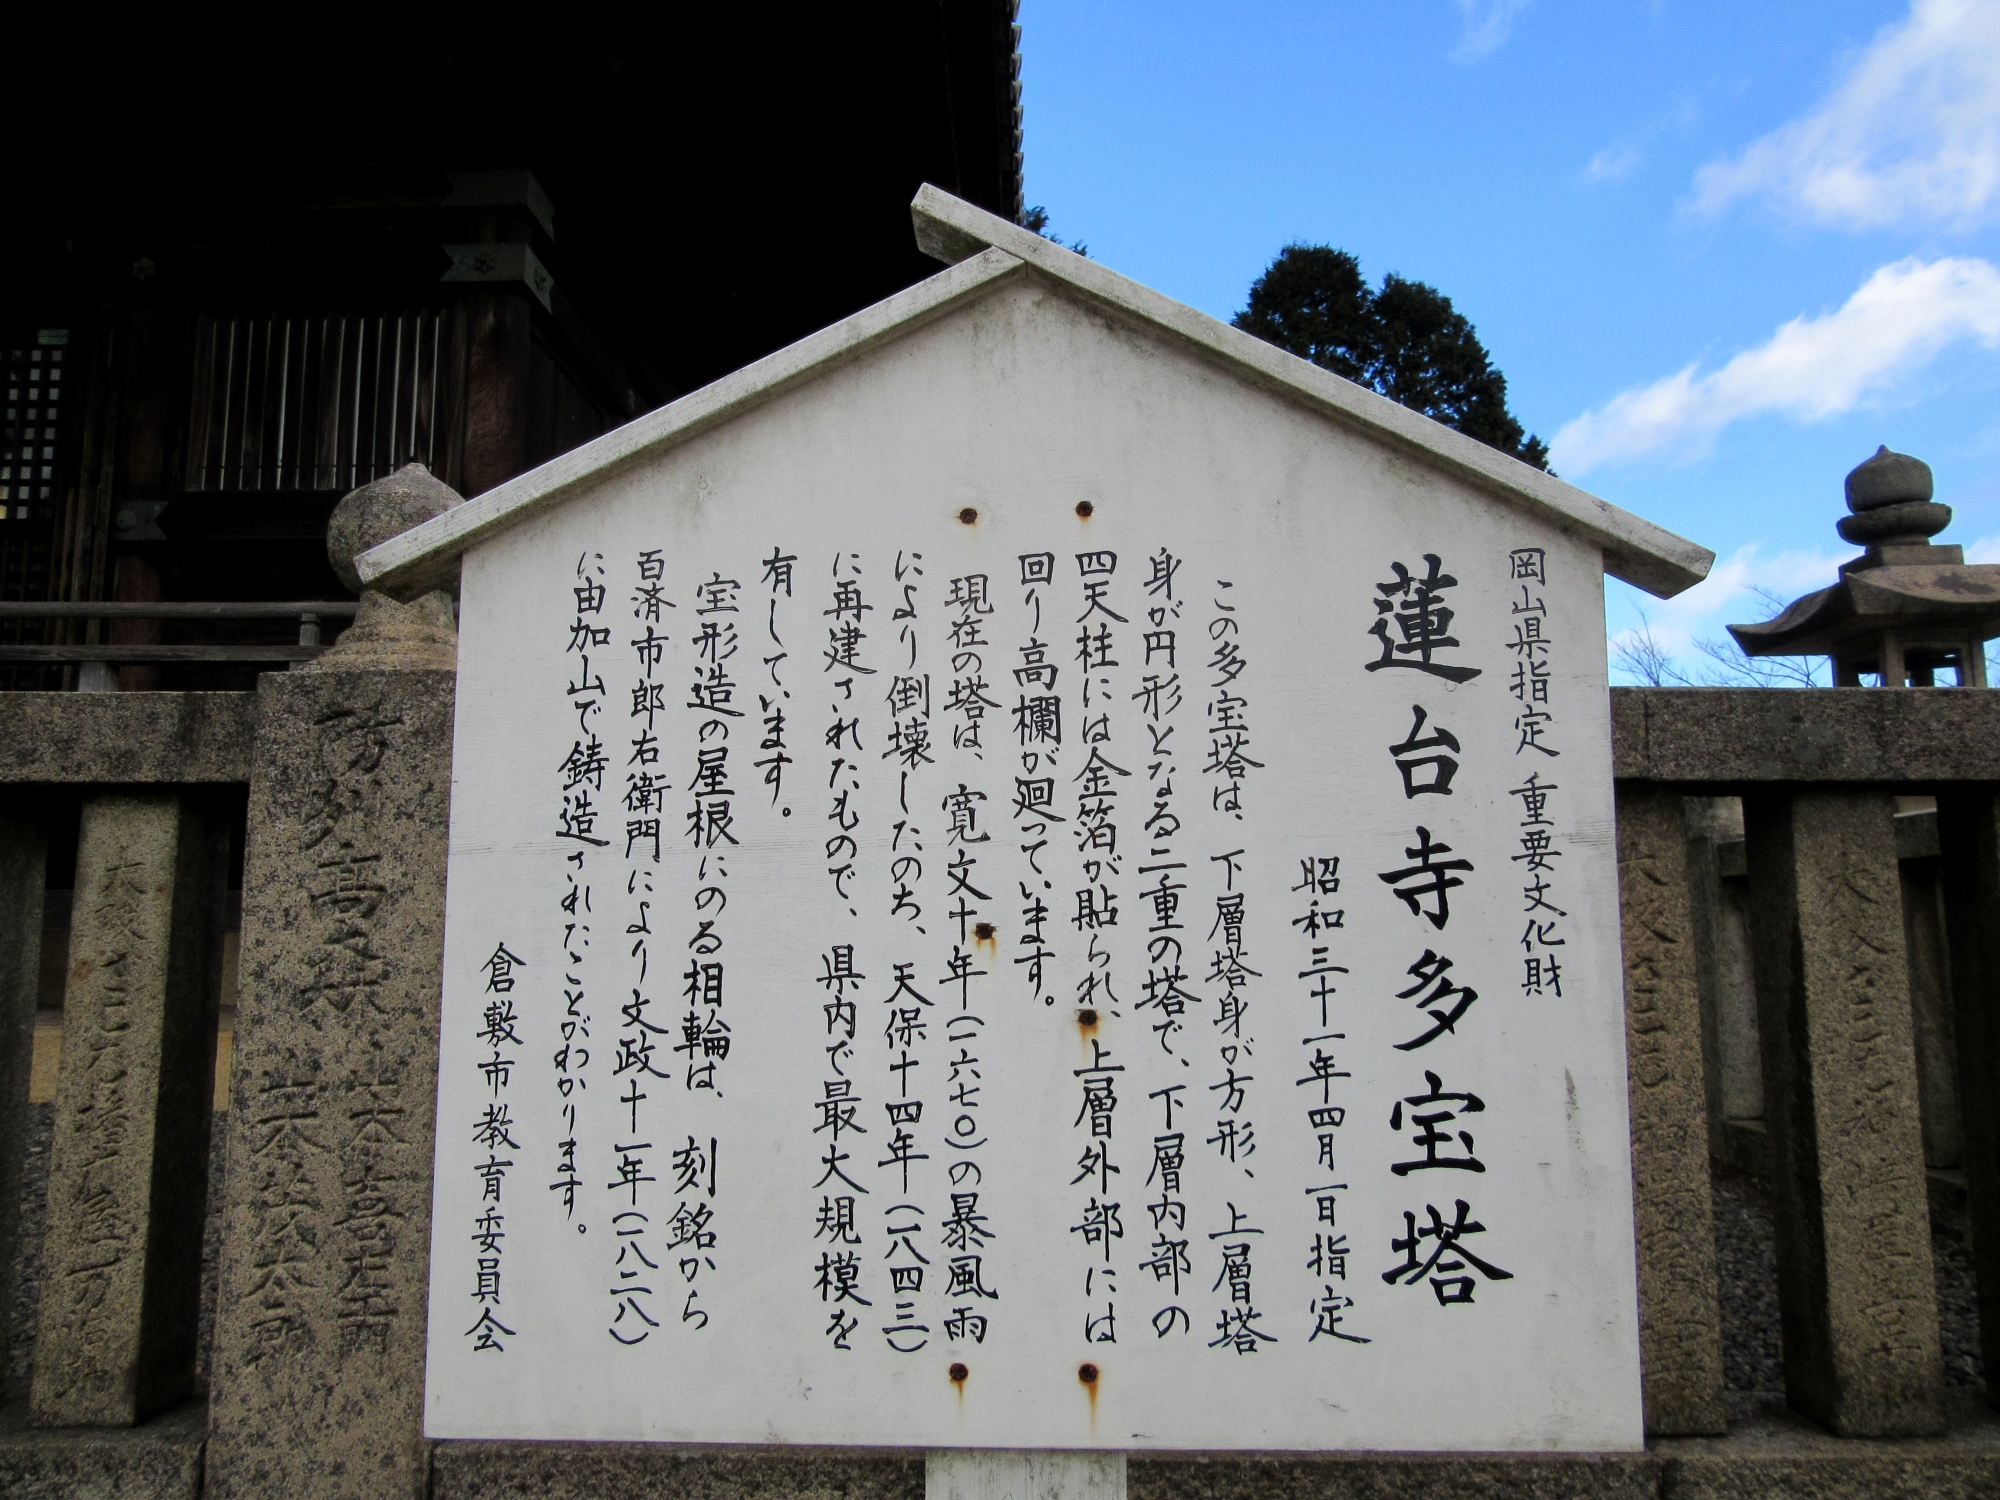 岡山県指定 重要文化財
蓮台寺多宝塔
昭和三十一年四月一日指定
この多宝塔は、下層塔身が方形、上層塔
身が円形となる二重の塔で、下層内部の
四天柱には金箔が貼られ、上層外部には
回り高欄が廻っています。
現在の塔は、寛文十年(一六七〇)の暴風雨
により倒壊したのち、天保十四年(一八四三)
に再建されたもので、県内で最大規模を
有しています。
宝形造の屋根にのる相輪は、刻銘から
百済市郎右衛門により文政十一年(一八二八)
に由加山で鋳造されたことがわかります。
倉敷市教育委員会